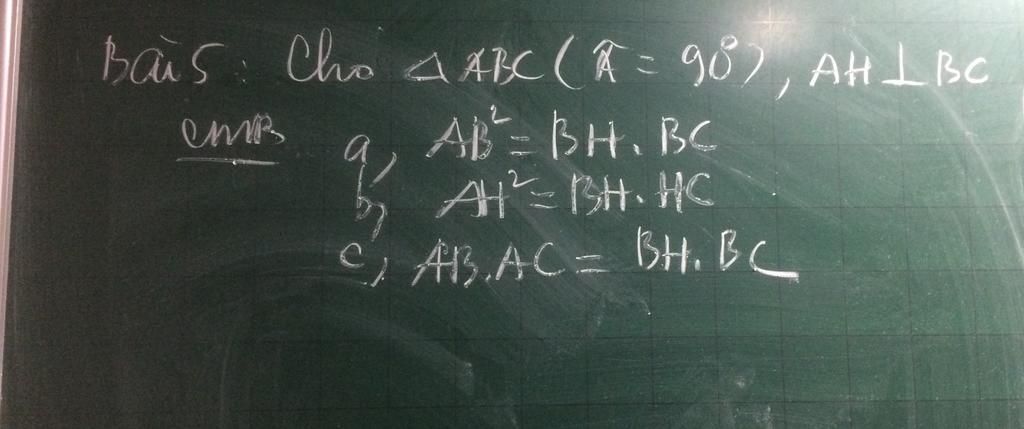 Bài 5: Cho △ABC (Â = 90°), AH ⊥ BC
CMR a, AB² = BH. BC
b, AH² = BH. HC
c, AB. AC = BH. BC